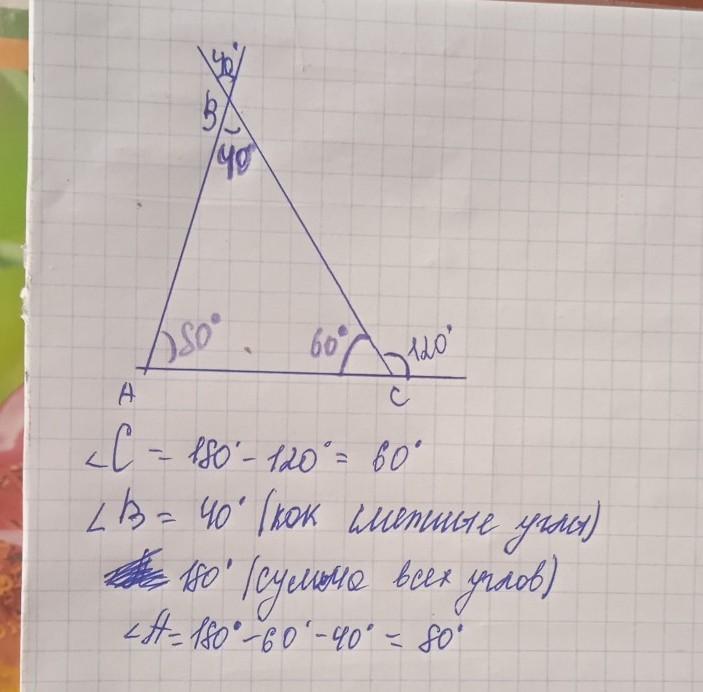 40°
B
40°
80°
60°
120°
A
C
∠C = 180° - 120° = 60°
∠B = 40° (как смежные углы)
180° (сумма всех углов)
∠A = 180° - 60° - 40° = 80°